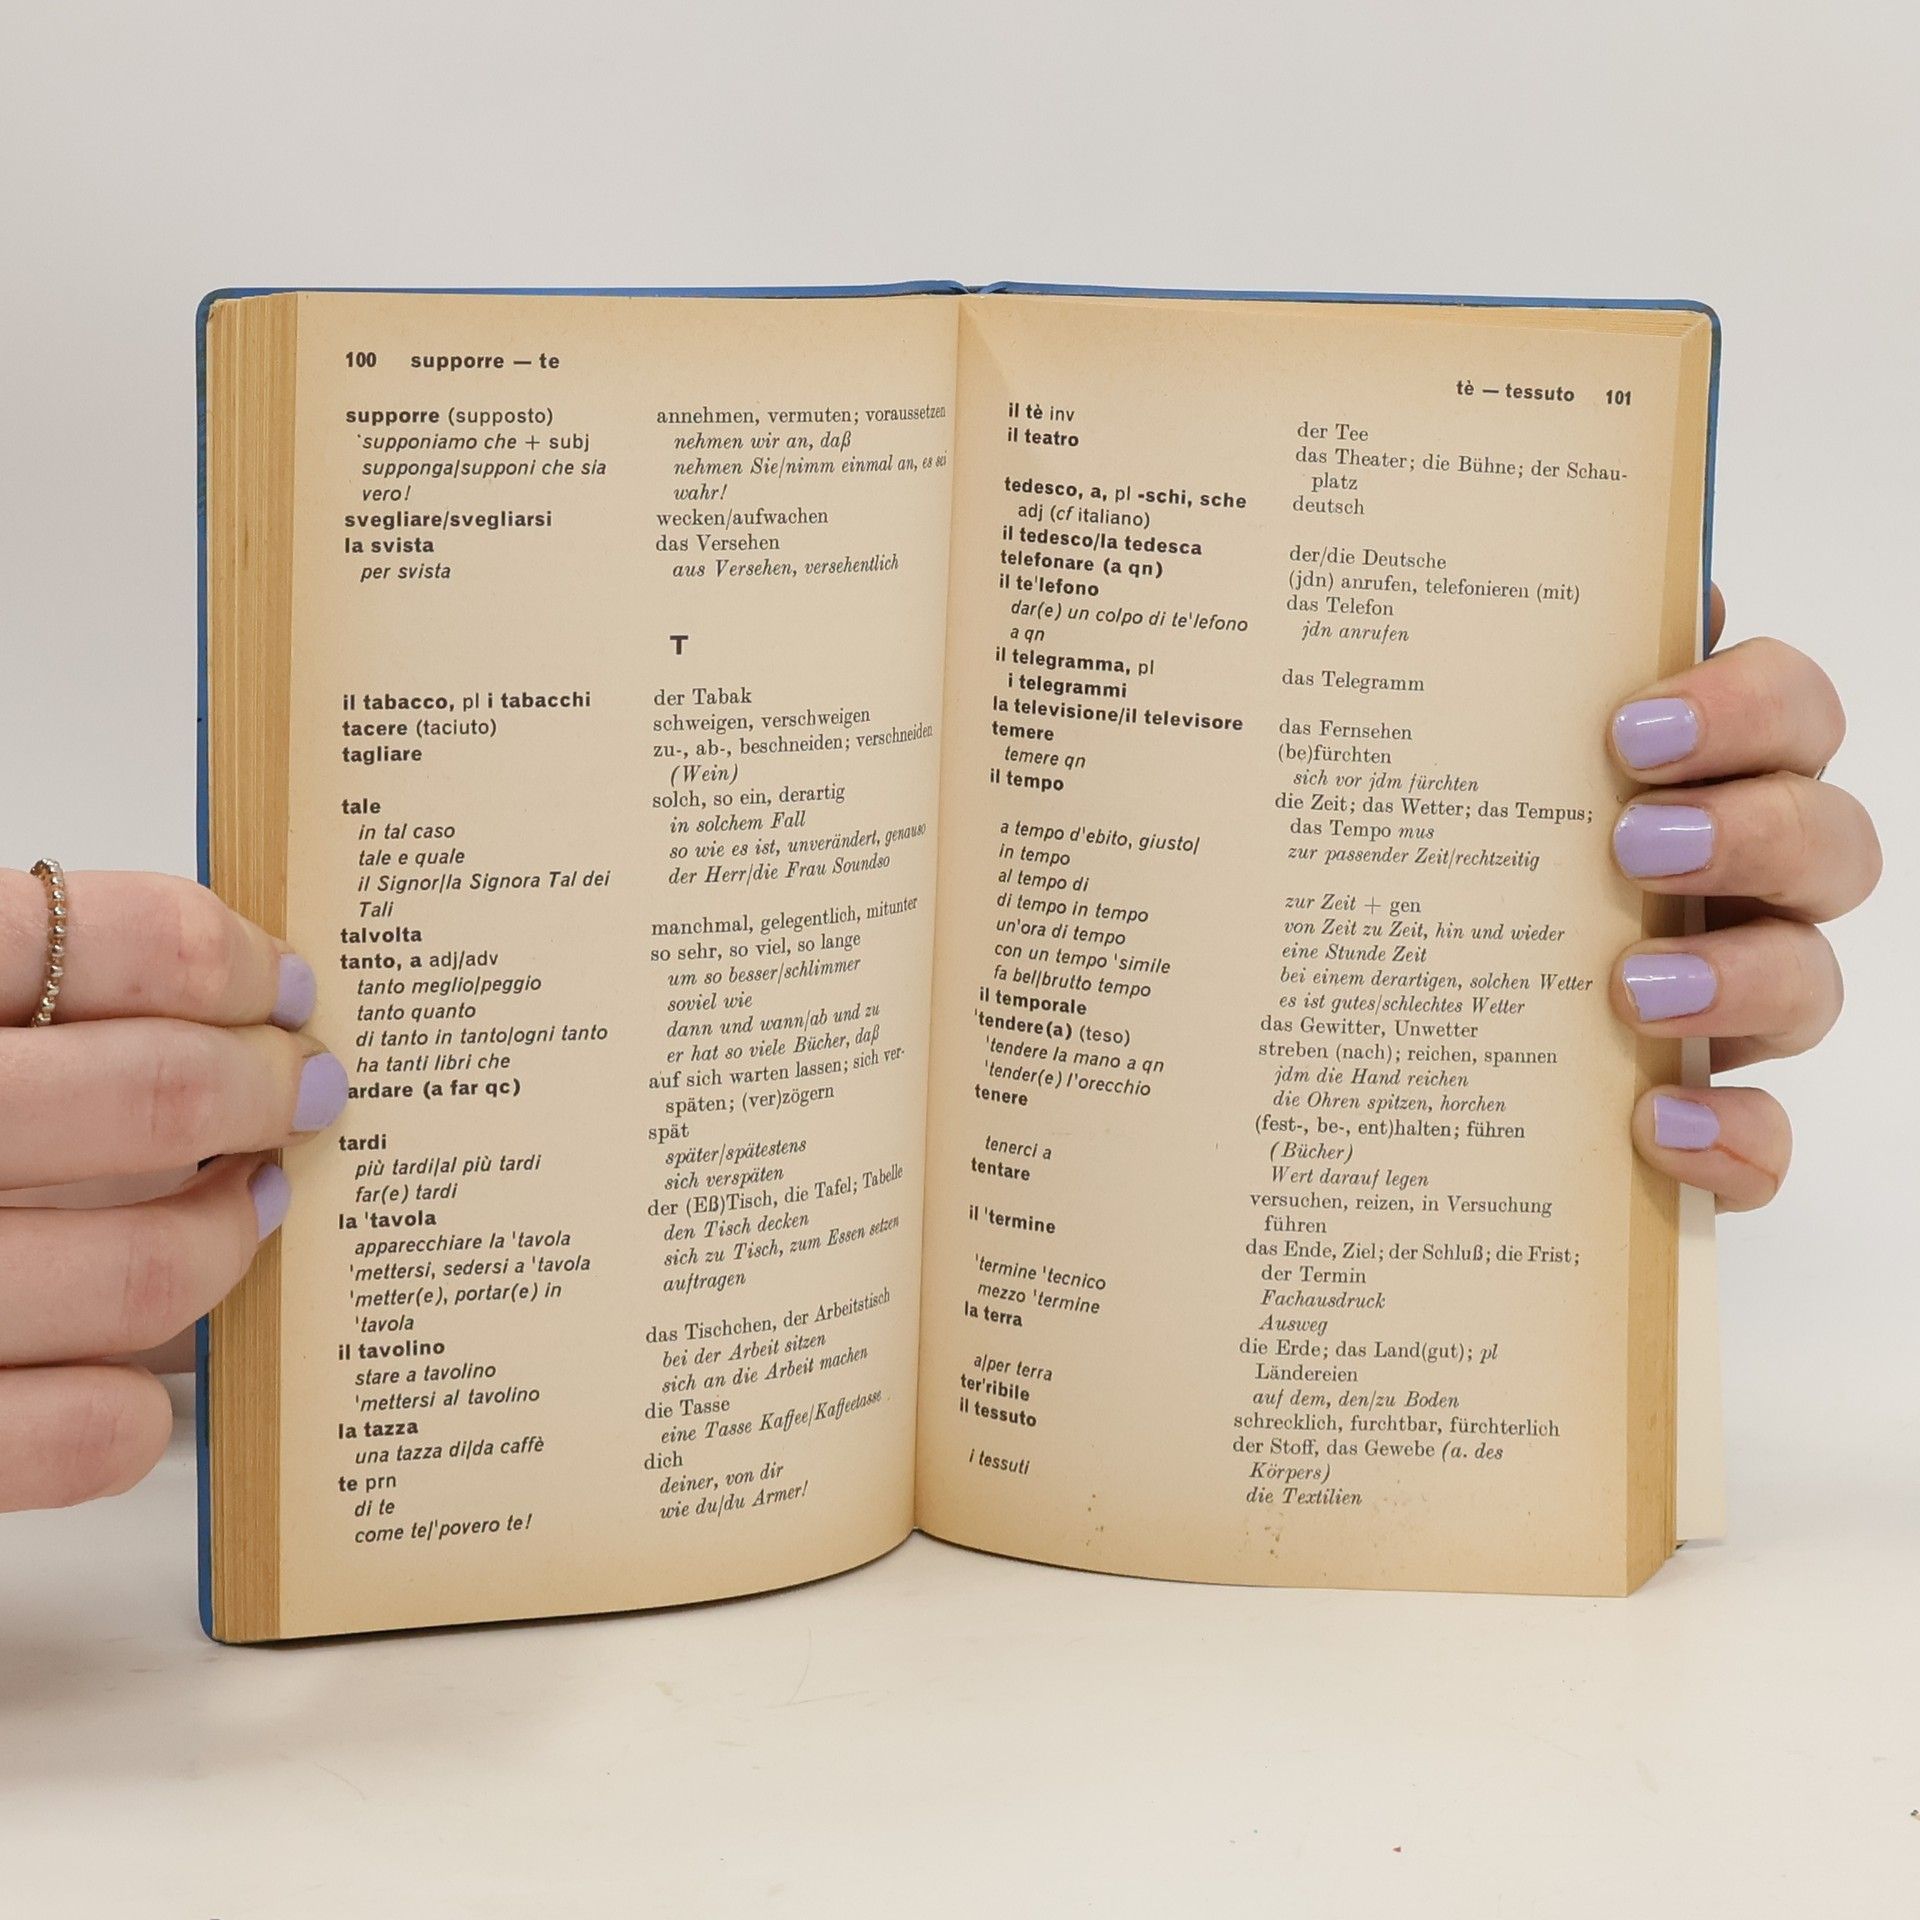 100 supporre — te
supporre (supposto) annehmen, vermuten; voraussetzen
supponiamo che + subj nehmen wir an, daß
supponga/supponi che sia nehmen Sie/nimm einmal an, es sei
vero! wahr!
svegliare/svegliarsi wecken/aufwachen
la svista das Versehen
per svista aus Versehen, versehentlich
T
il tabacco, pl i tabacchi der Tabak
tacere (taciuto) schweigen, verschweigen
tagliare zu-, ab-, beschneiden; verschneiden
(Wein)
tale solch, so ein, derartig
in tal caso in solchem Fall
tale e quale so wie es ist, unverändert, genauso
il Signor/la Signora Tal dei der Herr/die Frau Soundso
Tali
talvolta manchmal, gelegentlich, mitunter
tanto, a adj/adv so sehr, so viel, so lange
tanto meglio/peggio um so besser/schlimmer
tanto quanto soviel wie
di tanto in tanto/ogni tanto dann und wann/ab und zu
ha tanti libri che er hat so viele Bücher, daß
ardare (a far qc) auf sich warten lassen; sich ver-
späten; (ver)zögern
tardi spät
più tardi/al più tardi später/spätestens
far(e) tardi sich verspäten
la 'tavola der (Eß)Tisch, die Tafel; Tabelle
apparecchiare la 'tavola den Tisch decken
'mettersi, sedersi a 'tavola sich zu Tisch, zum Essen setzen
'metter(e), portar(e) in auftragen
'tavola
il tavolino das Tischchen, der Arbeitstisch
stare a tavolino bei der Arbeit sitzen
'mettersi al tavolino sich an die Arbeit machen
la tazza die Tasse
una tazza di/da caffè eine Tasse Kaffee/Kaffeetasse
te prn dich
di te deiner, von dir
come te/'povero te! wie du/du Armer!
tè — tessuto 101
il tè inv der Tee
il teatro das Theater; die Bühne; der Schau-
platz
tedesco, a, pl -schi, sche deutsch
adj (cf italiano)
il tedesco/la tedesca der/die Deutsche
telefonare (a qn) (jdn) anrufen, telefonieren (mit)
il te'lefono das Telefon
dar(e) un colpo di te'lefono jdn anrufen
a qn
il telegramma, pl das Telegramm
i telegrammi
la televisione/il televisore das Fernsehen
temere (be)fürchten
temere qn sich vor jdm fürchten
il tempo die Zeit; das Wetter; das Tempus;
das Tempo mus
a tempo d'ebito, giusto/ zur passender Zeit/rechtzeitig
in tempo
al tempo di zur Zeit + gen
di tempo in tempo von Zeit zu Zeit, hin und wieder
un'ora di tempo eine Stunde Zeit
con un tempo 'simile bei einem derartigen, solchen Wetter
fa bel/brutto tempo es ist gutes/schlechtes Wetter
il temporale das Gewitter, Unwetter
'tendere(a) (teso) streben (nach); reichen, spannen
'tendere la mano a qn jdm die Hand reichen
'tender(e) l'orecchio die Ohren spitzen, horchen
tenere (fest-, be-, ent)halten; führen
(Bücher)
tenerci a Wert darauf legen
tentare versuchen, reizen, in Versuchung
führen
il 'termine das Ende, Ziel; der Schluß; die Frist;
der Termin
'termine 'tecnico Fachausdruck
mezzo 'termine Ausweg
la terra die Erde; das Land(gut); pl
Ländereien
a/per terra auf dem, den/zu Boden
ter'ribile schrecklich, furchtbar, fürchterlich
il tessuto der Stoff, das Gewebe (a. des
Körpers)
i tessuti die Textilien